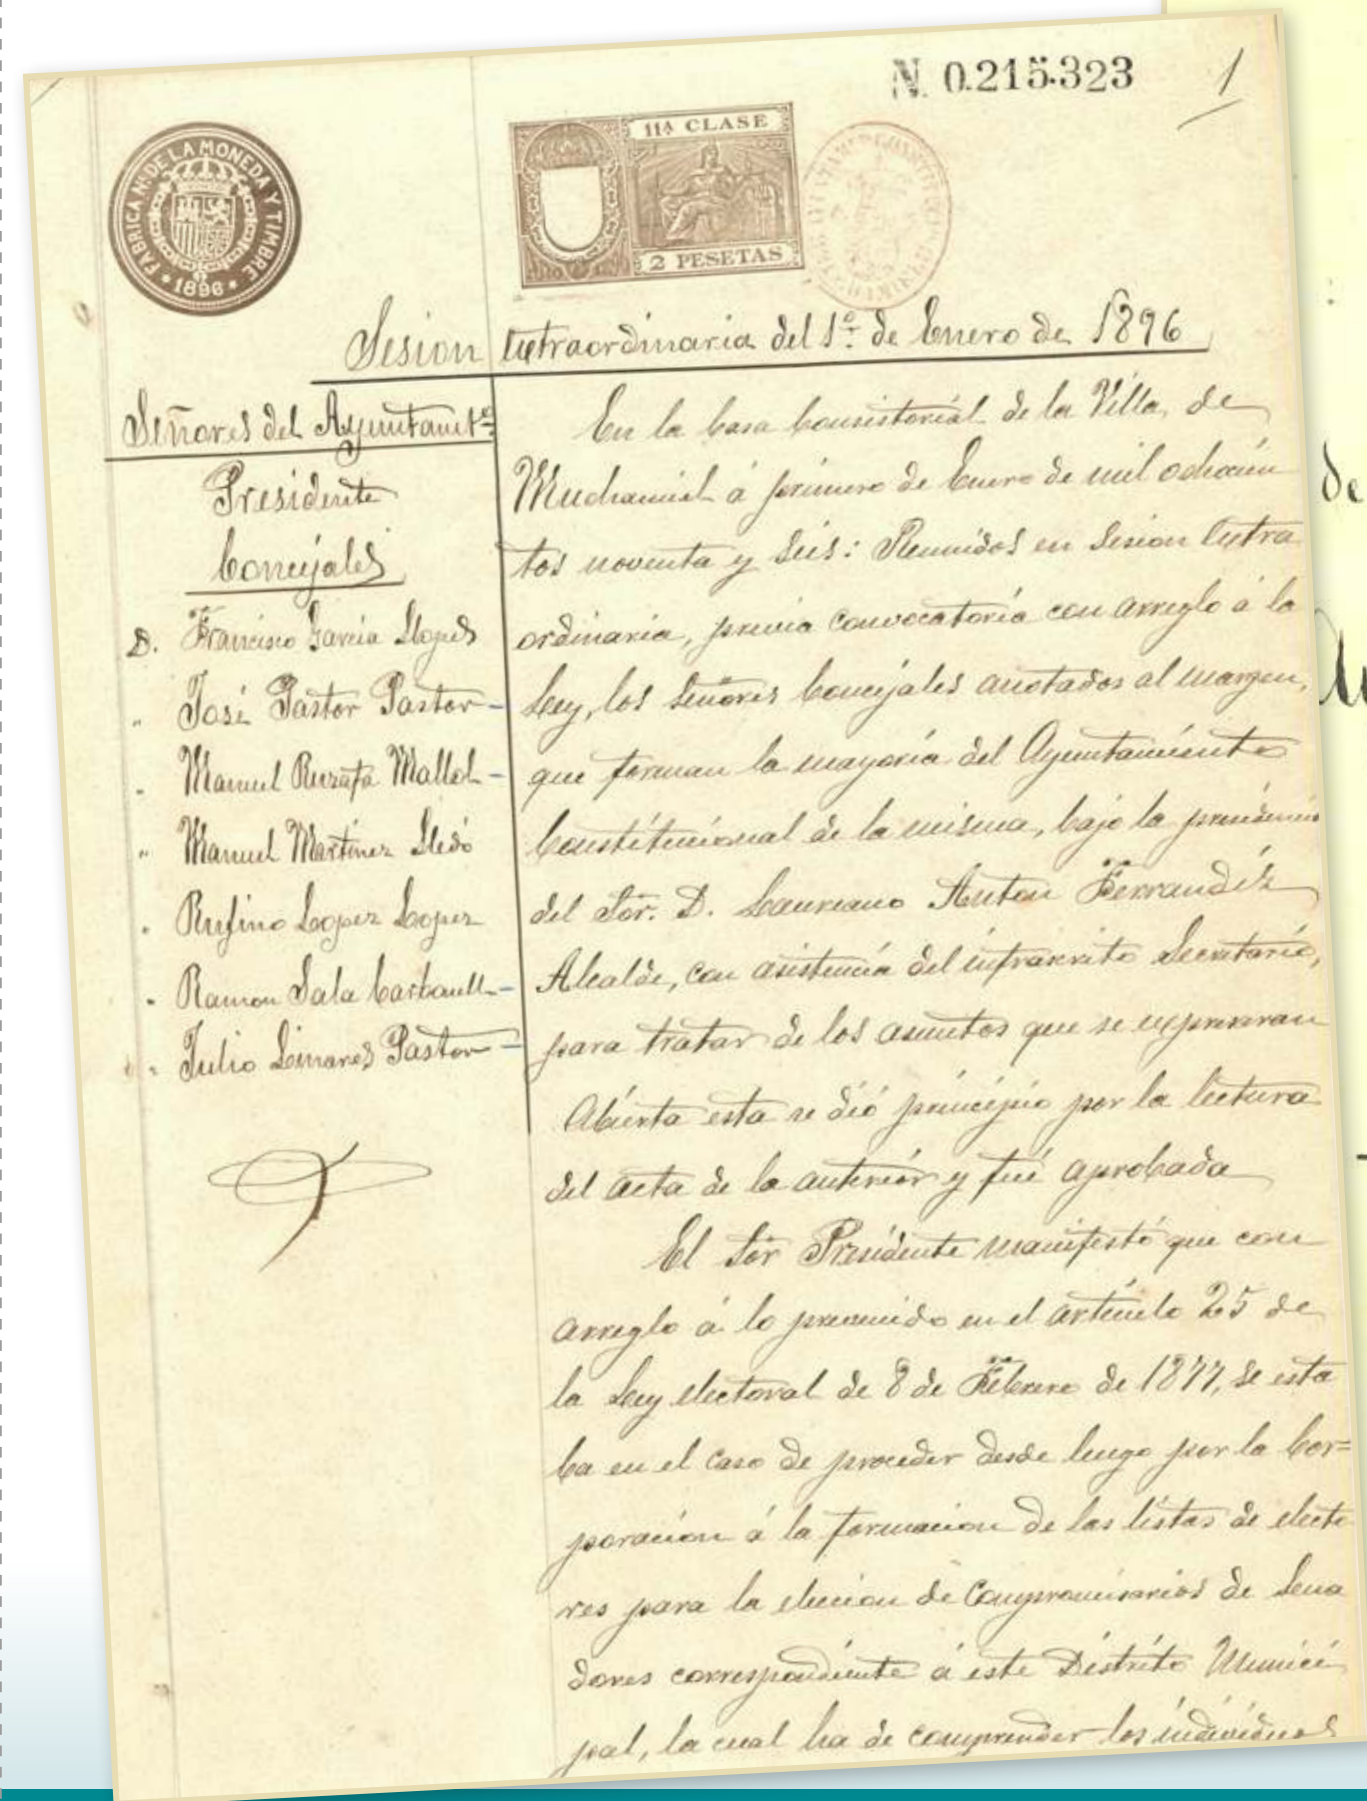 N. 0.215.323
1
FABRICA Nal DE LA MONEDA Y TIMBRE
1896
11ª CLASE
2 PESETAS
Sesion Extraordinaria del 1º de Enero de 1896
Señores del Ayuntamtº
Presidente
Concejales
D. Francisco Garcia Llopis
" José Pastor Pastor
" Manuel Buzafa Mallol
" Manuel Martinez Lledó
" Rufino Lopez Lopez
" Ramon Sala Carbonell
" Julio Linares Pastor
En la Casa Consistorial de la Villa de
Muchamiel á primero de Enero de mil ochocien
tos noventa y seis: Reunidos en Sesion Extra
ordinaria, previa convocatoria con arreglo á la
Ley, los Señores Concejales anotados al margen,
que forman la mayoría del Ayuntamiento
Constitucional de la misma, bajo la presidencia
del Sor. D. Laureano Anton Ferrandiz
Alcalde, con asistencia del infrascrito Secretario,
para tratar de los asuntos que se expresaran
Abierta esta se dió principio por la lectura
del acta de la anterior y fué aprobada
El Sor Presidente manifestó que con
arreglo á lo prevenido en el artículo 25 de
la Ley electoral de 8 de Febrero de 1877, se esta
ba en el caso de proceder desde luego por la Cor=
poracion á la formacion de las listas de electo
res para la eleccion de Compromisarios de Sena
dores correspondiente á este Distrito Munici
pal, la cual ha de comprender los individuos
de